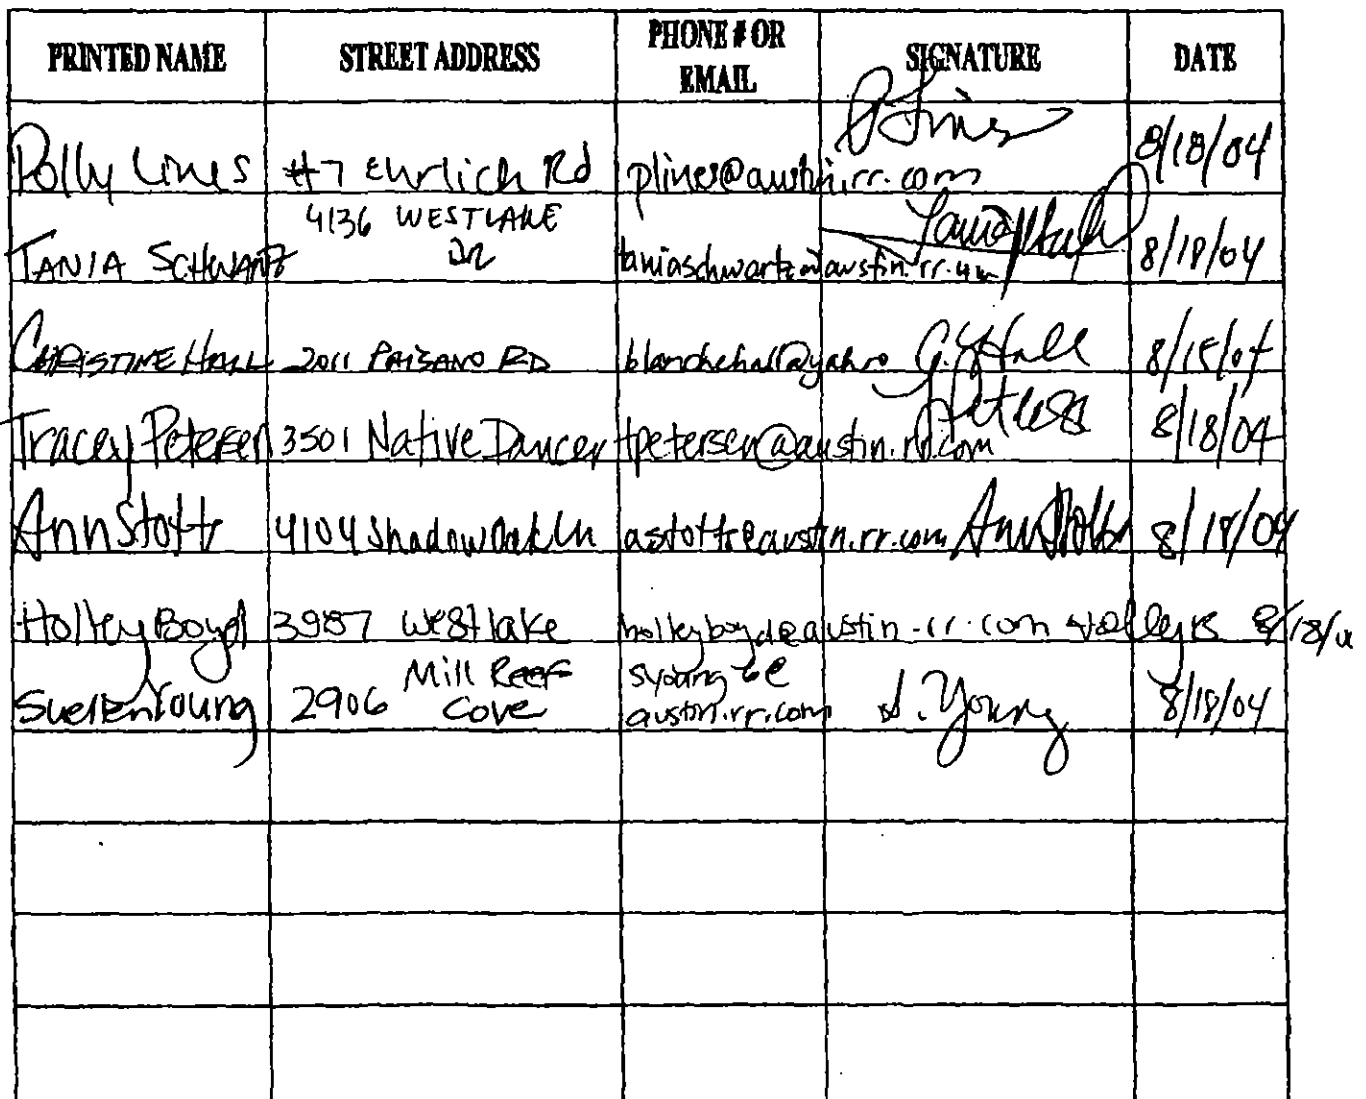 PRINTED NAME STREET ADDRESS PHONE # OR EMAIL SIGNATURE DATE
Polly Lines #7 Ehrlich Rd plines@austin.rr.com P Lines 8/18/04
TANIA SCHWARTZ 4136 WESTLAKE DR taniaschwartz@austin.rr.com 8/18/04
CHRISTINE HALL 2011 PAISANO RD blanchehall@yahoo C. Hall 8/18/04
Tracey Petersen 3501 Native Dancer tpetersen@austin.rr.com 8/18/04
Ann Stotts 4104 Shadow Oak Ln astotts@austin.rr.com Ann Stotts 8/18/04
Holley Boyd 3987 Westlake holleyboyd@austin.rr.com 8/18/04
Suellen Young 2906 Mill Reef Cove syoung6@austin.rr.com S. Young 8/18/04